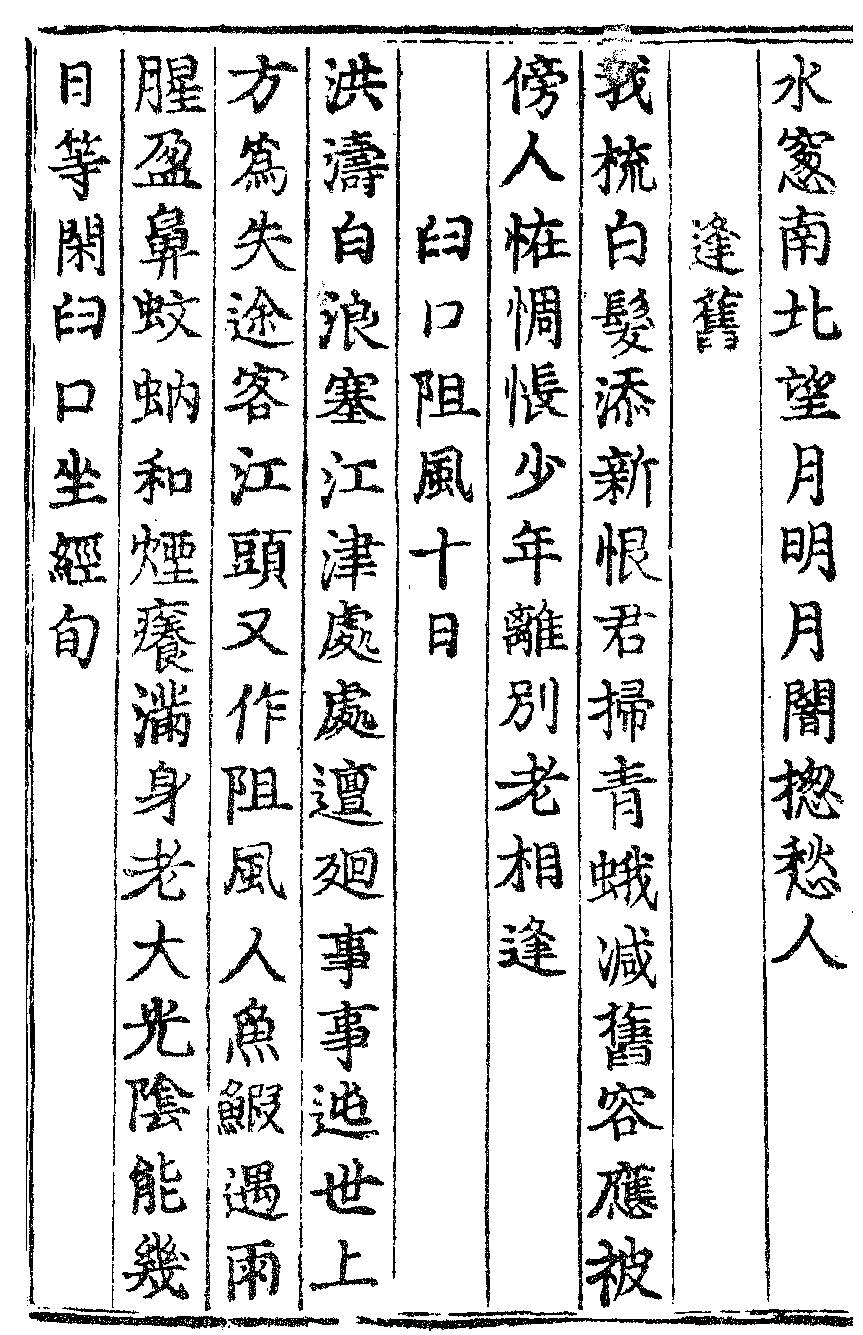 水窓南北望月明月闇揔愁人
逢舊
我梳白髮添新恨君掃青蛾減舊容應被
傍人恠惆悵少年離別老相逢
臼口阻風十日
洪濤白浪塞江津處處邅廻事事迍世上
方爲失途客江頭又作阻風人魚鰕遇雨
腥盈鼻蚊蚋和煙癢滿身老大光陰能幾
日等閑臼口坐經旬